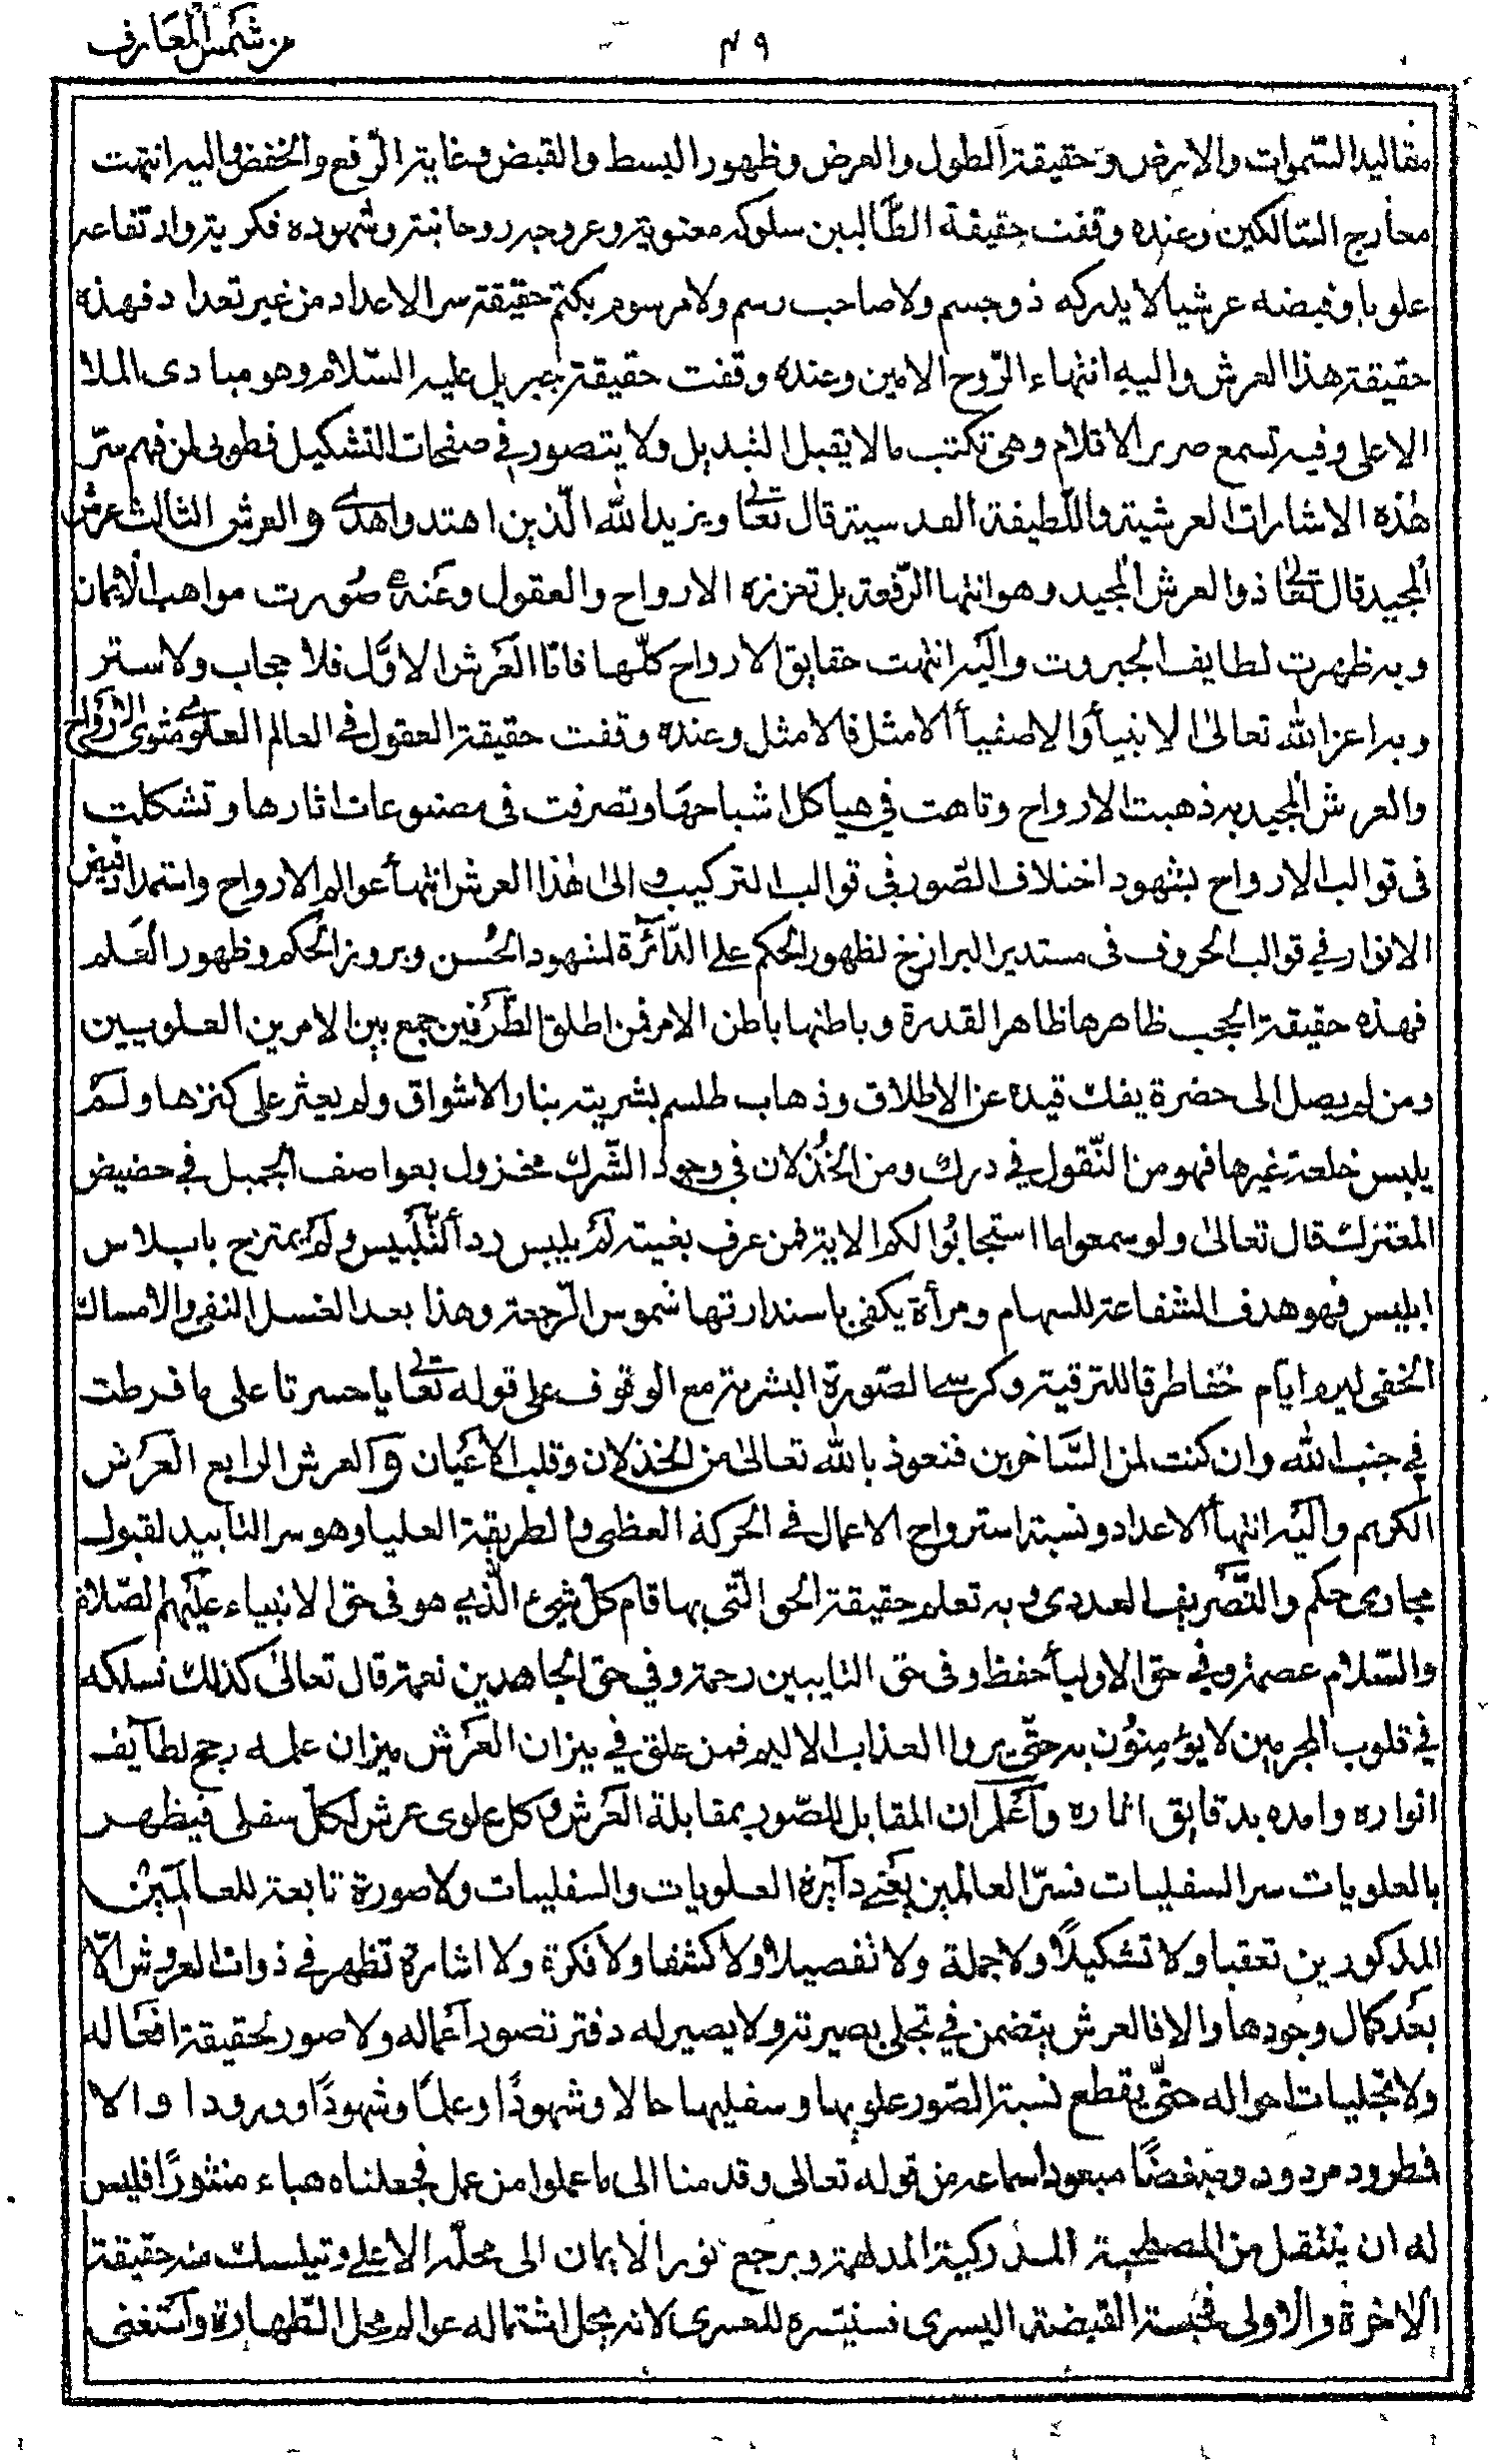 من شمس المعارف
٤٩
مقاليد السموات والارض وحقيقة الطول والعرض وظهور البسط والقبض وغاية الرفع والخفض واليه انتهت
معارج السالكين وعنده وقفت حقيقة الطالبين سلوكه معنوية وعروجه روحانية وشهوده فكرية وارتفاعه
علويا وفيضه عرشيا لا يدركه ذو جسم ولا صاحب رسم ولا مرسوم يكتم حقيقة سر الاعداد من غير تعداد فهذه
حقيقة هذا العرش واليه انتهاء الروح الامين وعنده وقفت حقيقة جبريل عليه السلام وهو مبادى الملا
الاعلى وفيه تسمع صرير الاقلام وهى تكتب ما لا يقبل التبديل ولا يتصور فى صفحات التشكيل فطوبى لمن فهم سر
هذه الاشارات العرشية واللطيفة القدسية قال تعالى ويزيد الله الذين اهتدوا هدى والعرش الثالث عرش
المجيد قال تعالى ذو العرش المجيد وهو انتها الرفعة بل تعززه الارواح والعقول وعنه صورت مواهب الايمان
وبه ظهرت لطايف الجبروت واليه انتهت حقايق الارواح كلها فاما العرش الاول فلا حجاب ولا ستر
وبه اعز الله تعالى الانبيأ والاصفيأ الامثل فالامثل وعنده وقفت حقيقة العقول فى العالم العلوى الارواح
والعرش المجيد به ذهبت الارواح وتاهت في هياكل اشباحها وتصرفت فى مصنوعات اثارها وتشكلت
فى قوالب الارواح بشهود اختلاف الصور فى قوالب التركيب والى هذا العرش انتهأ عوالم الارواح واستمداد فيض
الانوار في قوالب الحروف فى مستدير البرازخ لظهور الحكم على الدائرة لشهود الحسن وبروز الحكم وظهور العلم
فهذه حقيقة الحجب ظاهرها ظاهر القدرة وباطنها باطن الامر فمن اطلق الطرفين جمع بين الامرين العلويين
ومن لم يصل الى حضرة يفك قيده عن الاطلاق وذهاب طلسم بشريته بنار الاشواق ولم يعثر على كنزها ولم
يلبس خلعة غيرها فهو من النقول في درك ومن الخذلان في وجود الشرك مخزول بعواصف الجمبل في حضيض
المعترك قال تعالى ولو سمعوا ما استجابوا لكم الاية فمن عرف بغيته لم يلبس ردأ التلبيس ولم يمتزج بابلاس
ابليس فهو هدف الشفاعة للسهام ومرأة يكفى باستدارتها شموس الرجعة وهذا بعد الغسل النفى والامساك
الخفى ايام للترقية الصورة البشرية مع الوقوف على قوله تعالى يا حسرتا على ما فرطت
في جنب الله وان كنت لمن الساخرين فنعوذ بالله تعالى من الخذلان وقلب الاعيان والعرش الرابع العرش
الكريم واليه انتهأ الاعداد ونسبة استرواح الاعمال في الحركة العظمى والطريقة العليا وهو سر التأبيد لقبول
مجارى حكم والتصريف العددى وبه تعلم حقيقة الحق التى بها قام كل شئ الذي هو فى حق الانبياء عليهم الصلاة
والسلام عصمة وفي حق الاوليأ حفظ وفى حق التايبين رحمة وفي حق الجاهدين نعمة قال تعالى كذلك نسلكه
في قلوب المجرمين لا يؤمنون به حتى يروا العذاب الاليم فمن علق في ميزان العرش ميزان علمه رجح لطايف
انواره وامده بدقايق اثماره واعلم ان المقابل للصور بمقابلة العرش وكل علوى عرش لكل سفلى فيظهر
بالعلويات سر السفليات فسر العالمين يعني دآيرة العلويات والسفليات ولا صورة تابعة للعالمين
المذكورين تعقبا ولا تشكيلا ولا جملة ولا تفصيلا ولا كشفا ولا فكرة ولا اشارة تظهر في ذوات العروش الا
بعد كمال وجودها والا فالعرش يتضمن في تجلى بصيرته ولا يصير له دفتر تصور اعماله ولا صور لحقيقة افعاله
ولا تجليات احواله حتى يقطع نسبة الصور علويها وسفليها حالا وشهودا وعلما وشهودا وورودا والا
فطرود مردود اسماعه من قوله تعالى وقدمنا الى ما عملوا من عمل فجعلناه هباء منثورا فليس
له ان ينتقل من المدلهمة ويرجع نور الايمان الى محله الاعلى منه حقيقة
الاخرة والاولى القبضة اليسرى فسنيسره للعسرى لانه بخل اشتماله عوالم محل الطهارة واستغنى